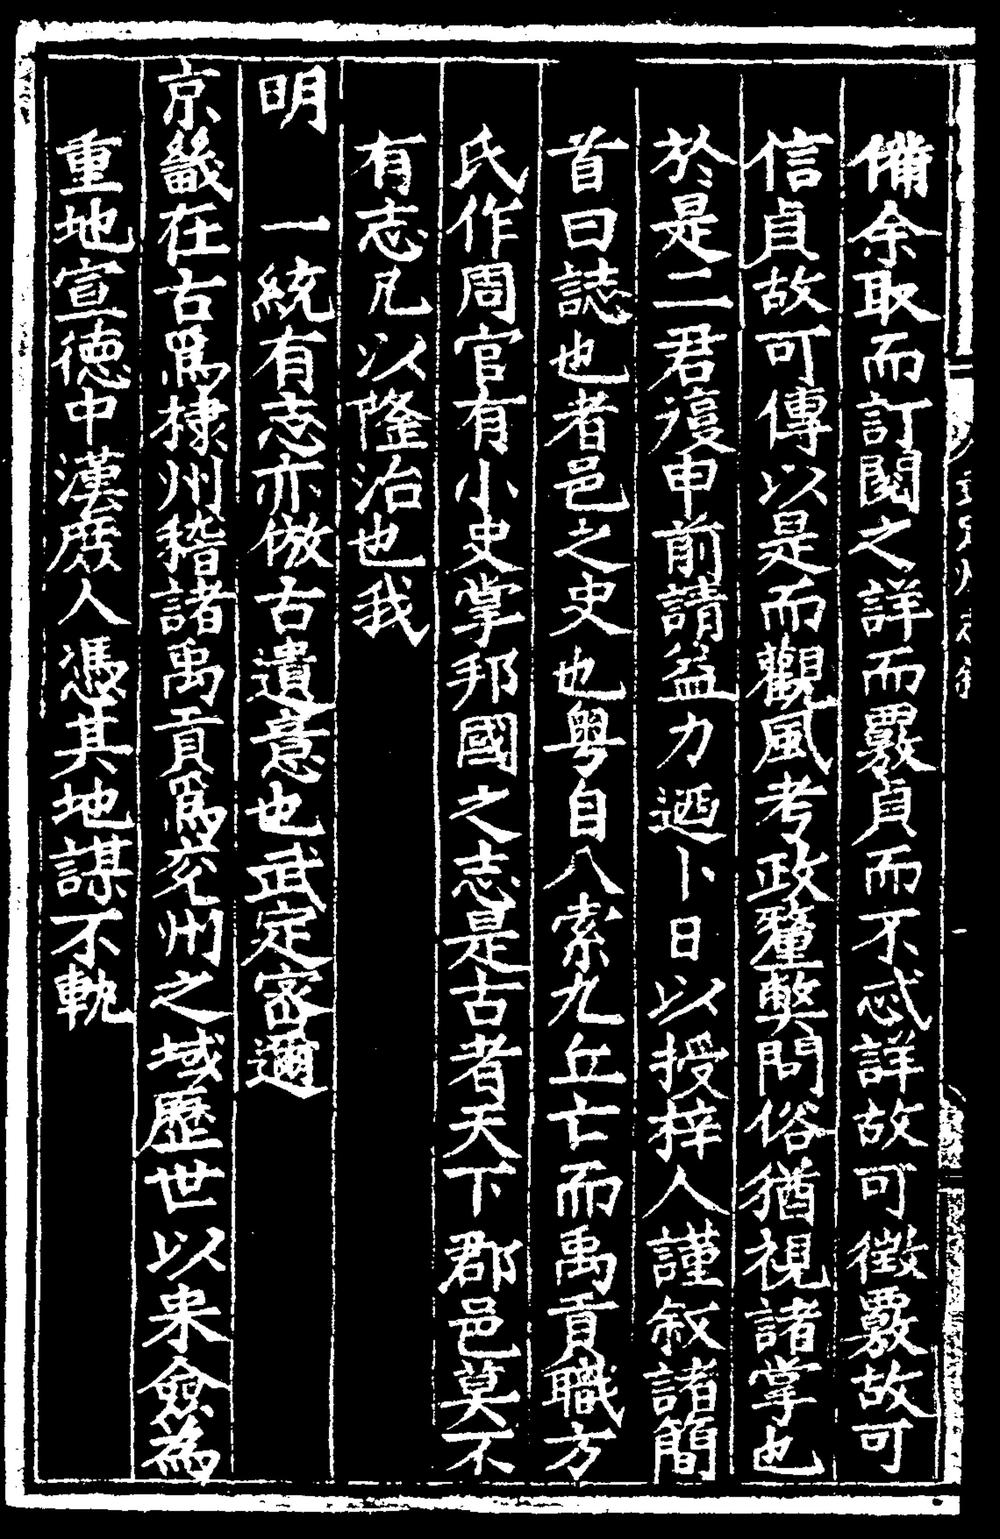 備余取而訂閱之詳而覈貞而不忒詳故可徵覈故可
信貞故可傳以是而觀風考政釐獘問俗猶視諸掌也
於是二君復申前請益力迺卜日以授梓人謹叙諸簡
首曰誌也者邑之史也粵自八索九丘亡而禹貢職方
氏作周官有小史掌邦國之志是古者天下郡邑莫不
有志凡以隆治也我
明一統有志亦倣古遺意也武定密邇
京畿在古爲棣州稽諸禹貢爲兗州之域歷世以来僉為
重地宣德中漢庶人憑其地謀不軌